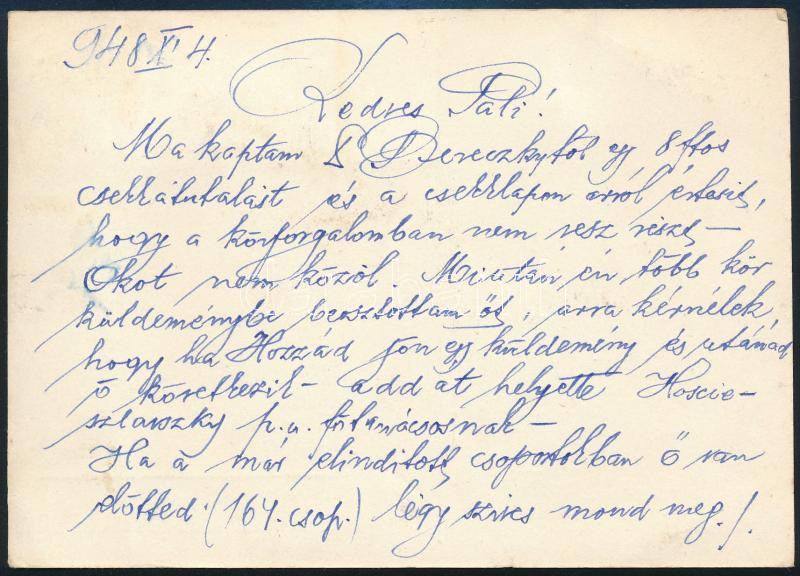 948 XI 4.
Kedves Pali!
Ma kaptam Bereczkytől egy 8 ftos
csekkátutalást és a csekklapon arról értesit,
hogy a körforgalomban nem vesz részt –
Okot nem közöl. Miután én több kör
küldeménybe beosztottam őt, arra kérnélek
hogy ha Hozzád jön egy küldemény és utánad
ő következik – add át, helyette Hoscie-
szlavszky p.ü. főtanácsosnak –
Ha a már elinditott csoportokban ő van
előtted (164. csop.) légy szives mond meg!